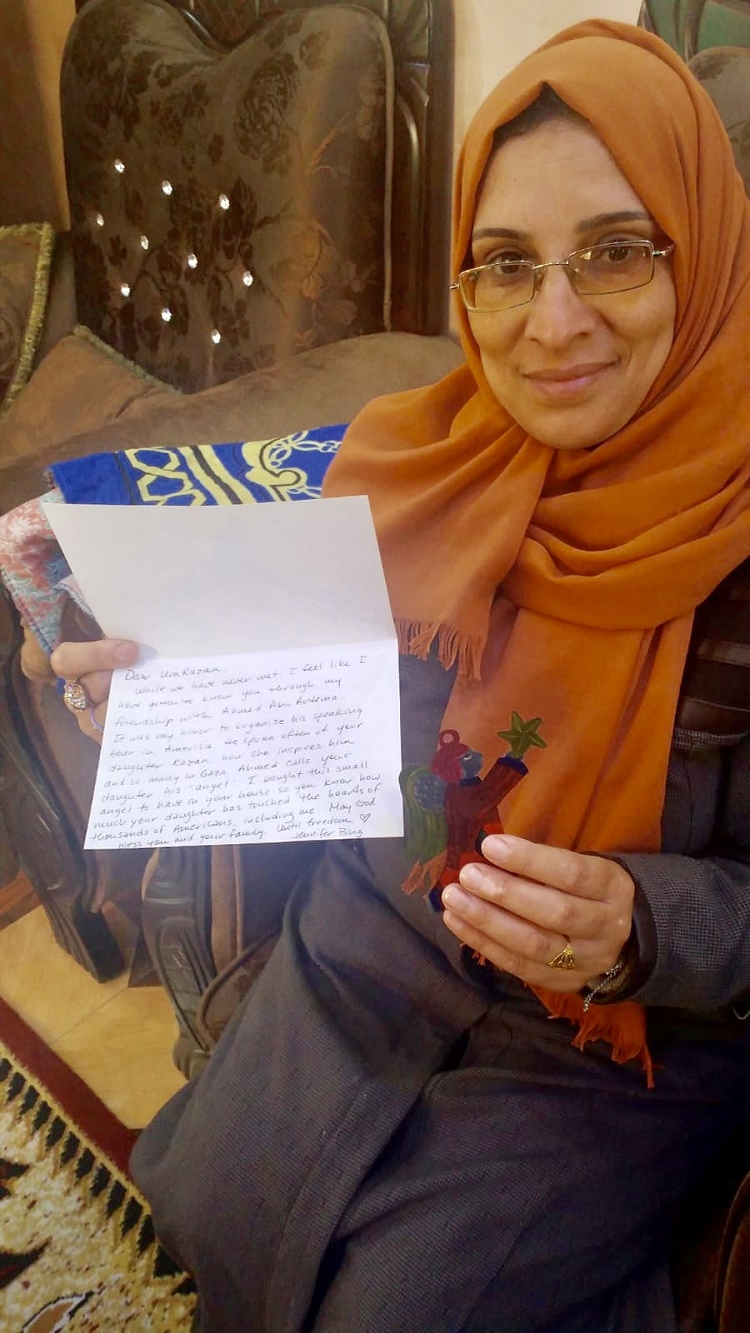 Dear UmRazan,
While we have never met, I feel like I
have gotten to know you through my
friendship with Ahmed Abu Artema.
It was my honor to organize his speaking
tour in America. He spoke often of your
daughter Razan, how she inspires him
and so many in Gaza. Ahmed calls your
daughter his "angel". I bought this small
angel to have in your house so you know how
much your daughter has touched the hearts of
thousands of Americans, including me. May God
bless you and your family. Until freedom ♡
Jennifer Bing